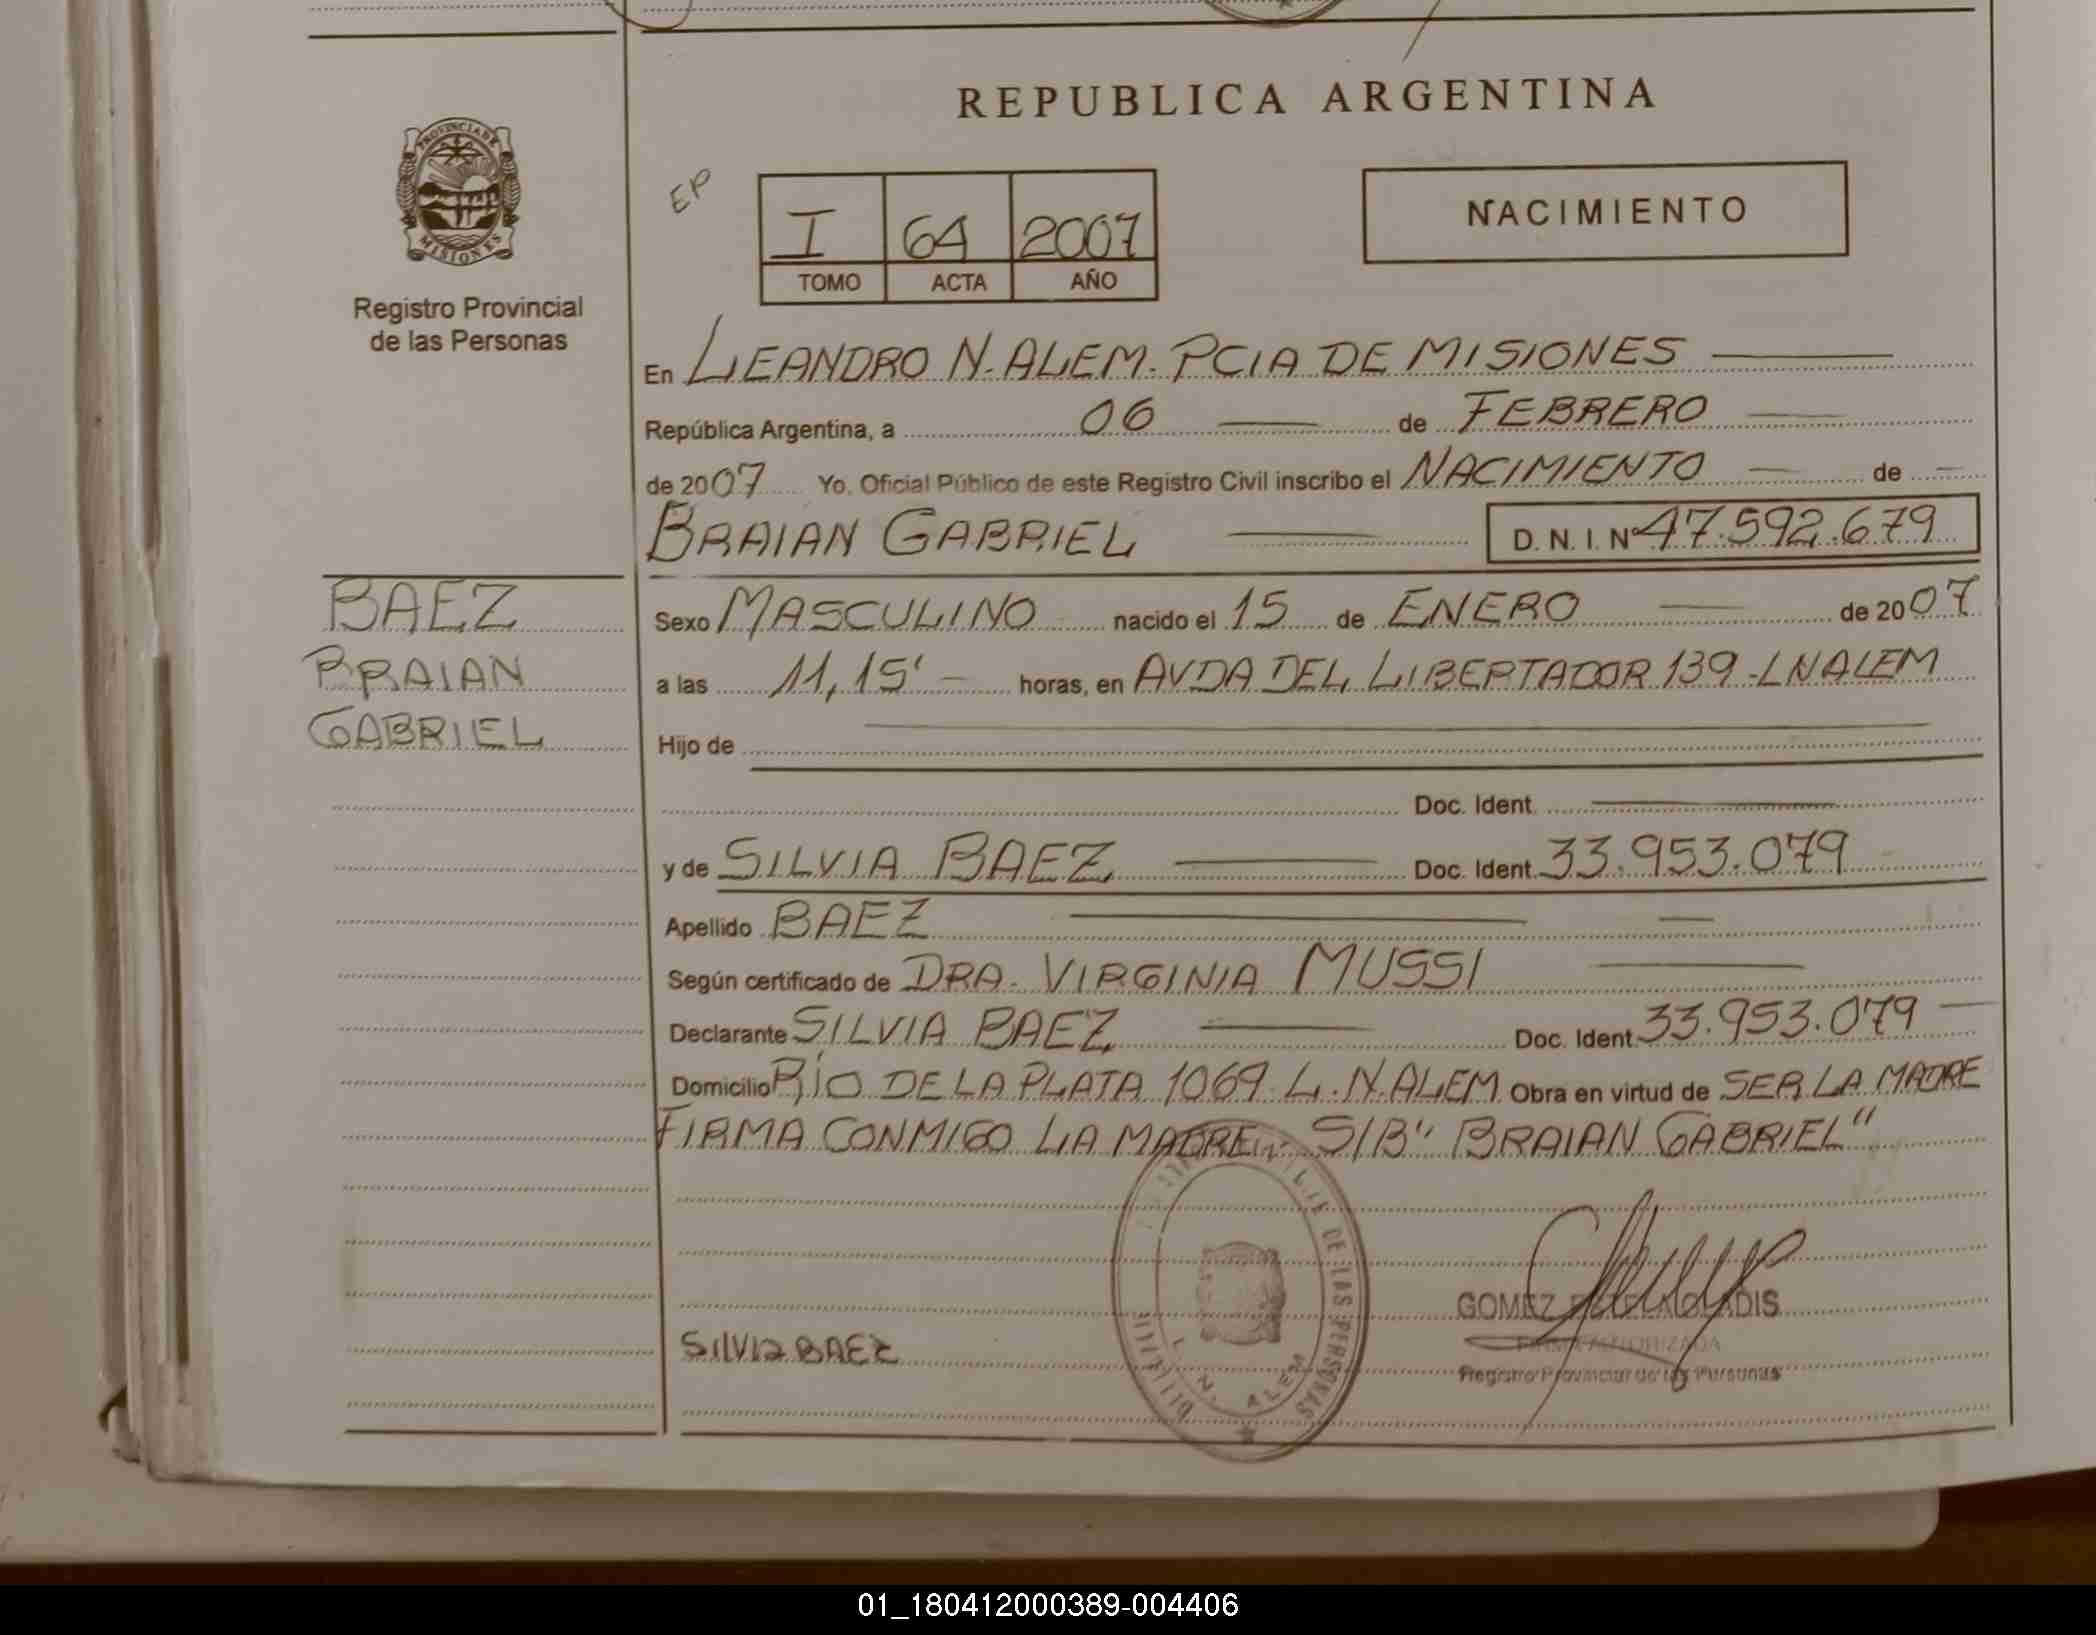 REPUBLICA ARGENTINA
PROVINCIA DE MISIONES
Registro Provincial
de las Personas
EP
I 64 2007
TOMO ACTA AÑO
NACIMIENTO
En LEANDRO N. ALEM. PCIA DE MISIONES
República Argentina, a 06 de FEBRERO
de 2007 Yo, Oficial Público de este Registro Civil inscribo el NACIMIENTO de
BRAIAN GABRIEL D. N. I. Nº 47.592.679
BAEZ
BRAIAN
GABRIEL
Sexo MASCULINO nacido el 15 de ENERO de 2007
a las 11,15' horas, en AVDA DEL LIBERTADOR 139 - L N ALEM
Hijo de
Doc. Ident.
y de SILVIA BAEZ Doc. Ident. 33.953.079
Apellido BAEZ
Según certificado de DRA. VIRGINIA MUSSI
Declarante SILVIA BAEZ Doc. Ident. 33.953.079
Domicilio RÍO DE LA PLATA 1069. L. N. ALEM Obra en virtud de SER LA MADRE
FIRMA CONMIGO LA MADRE S/B "BRAIAN GABRIEL"
DE LAS PERSONAS
L. N. ALEM
SILVIA BAEZ
GOMEZ GLADIS
FIRMA AUTORIZADA
Registro Provincial de las Personas
01_180412000389-004406